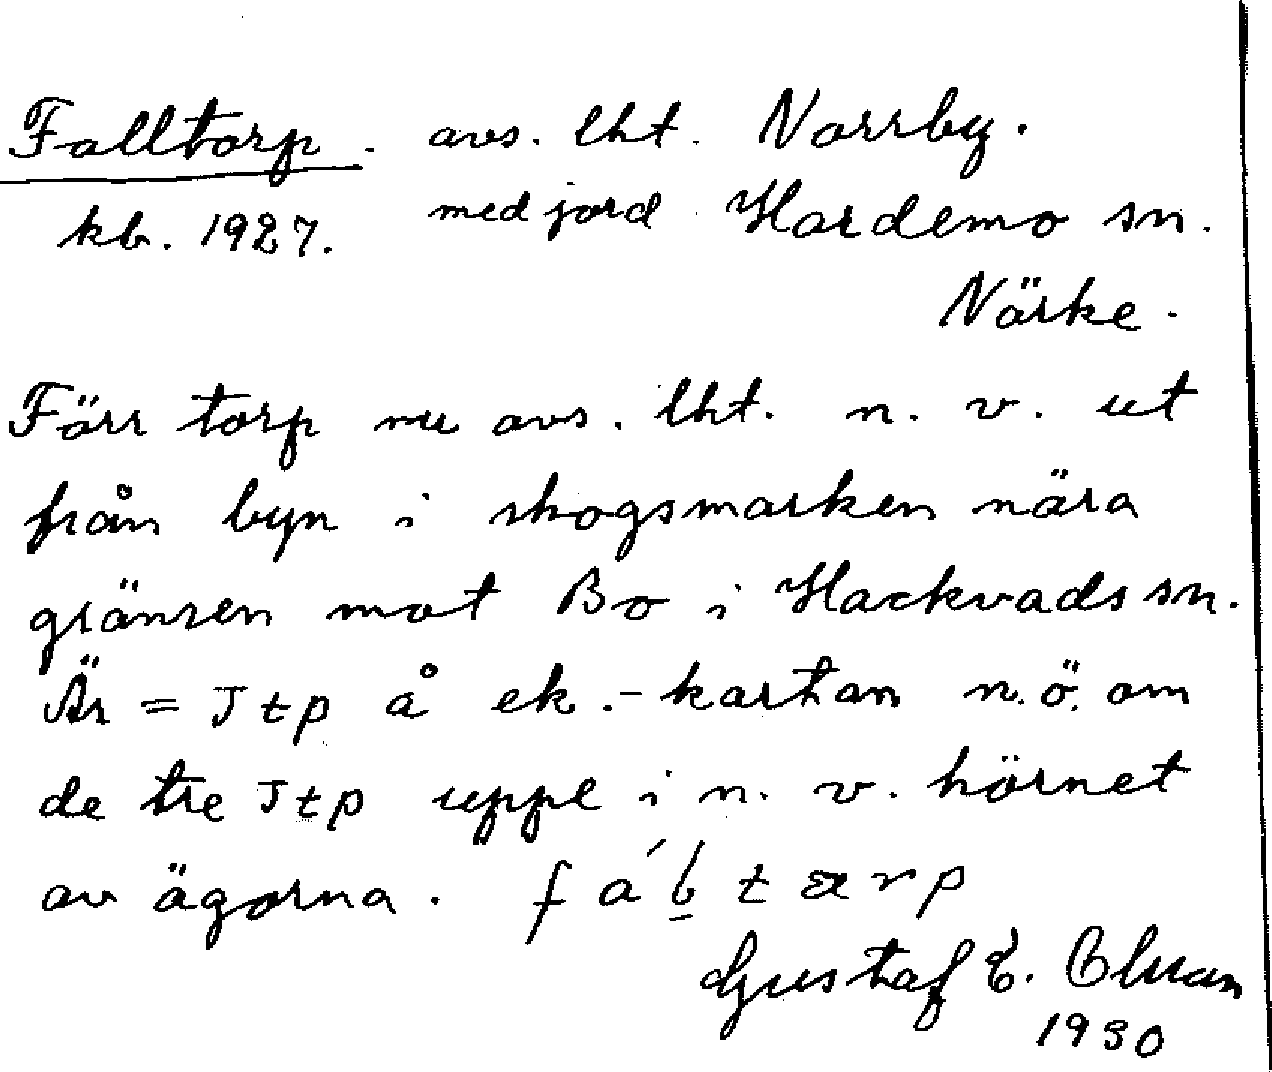 Falltorp. avs. lht. Norrby.
kb. 1927. med jord Hardemo sn.
Närke.
Förr torp nu avs. lht. n. v. ut
från byn i skogsmarken nära
gränsen mot Bo i Hackvads sn.
Är = Jtp å ek.-kartan n.ö. om
de tre Jtp uppe i n. v. hörnet
av ägorna.
Gustaf E.
1930